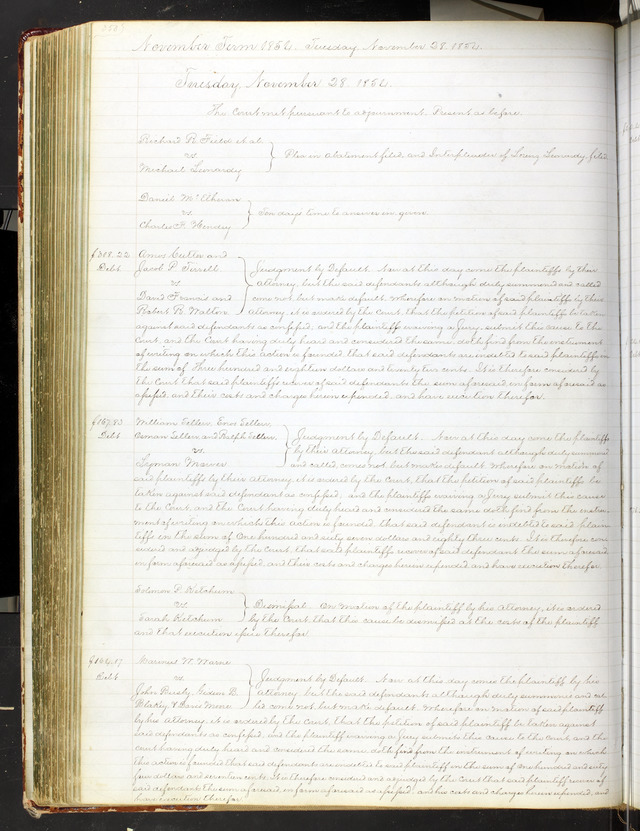 November Term 1854. Tuesday November 28. 1854.
Tuesday November 28. 1854.
The Court met pursuant to adjournment. Present as before.
Richard R. Field et al.
vs
Michael Limardy
Plea in abatement filed, and Interpleader of Limardy filed
Daniel Mc Elheran
vs.
Charles F. Hendry
Ten days time to answer in given
$318.22
Debt
Amos Cutler and
Jacob P. Terrell
vs
David Francis and
Robert R. Walton
Judgment by Default. Now at this day come the plaintiffs by their
attorney, but the said defendants although duly summoned and called
come not, but make default. Wherefore on motion of said plaintiffs by their
attorney, it is ordered by the Court, that the petition of said plaintiffs be taken
against said defendants as confessed, and the plaintiffs waiving a Jury, submit this cause to the
Court, and the Court having duly heard and considered the same doth find from the instrument
of writing on which this action is founded, that said defendants are indebted to said plaintiffs in
the sum of Three hundred and eighteen dollars and twenty two cents. It is therefore considered by
the Court that said plaintiffs recover of said defendants the sum aforesaid in form aforesaid as
assessed, and their costs and charges herein expended, and have execution therefor.
$167.83
Debt
William Sellew, Enos Sellew,
Osman Sellew and Ralph Sellew
vs.
Lyman Mower
Judgment by Default. Now at this day come the plaintiffs
by their attorney, but the said defendant although duly summoned
and called, comes not but makes default. Wherefore on motion of
said plaintiffs by their Attorney it is ordered by the Court, that the petition of said plaintiffs be
taken against said defendant as confessed, and the plaintiffs waiving a Jury submit this cause
to the Court, and the Court having duly heard and considered the same doth find from the instru-
ment of writing on which this action is founded, that said defendant is indebted to said plain-
tiffs in the sum of One hundred and sixty seven dollars and eighty three cents. It is therefore con-
sidered and adjudged by the Court, that said plaintiffs recover of said defendant the sum aforesaid
in form aforesaid as assessed, and their costs and charges herein expended and have execution therefor
Solomon P. Ketchum
vs.
Sarah Ketchum
Dismissed. On motion of the plaintiff by his Attorney, it is ordered
by the Court, that this cause be dismissed at the costs of the plaintiff
and that execution issue therefor
$164.17
Debt
Marinus W. Warne
vs
John Presly, Gideon B.
Blakey &amp; Denis Mona
Judgment by Default. Now at this day comes the plaintiff by his
attorney, but the said defendants although duly summoned and cal
led come not but make default. Wherefore on motion of said plaintiff
by his attorney, it is ordered by the Court, that the petition of said plaintiff be taken against
said defendants as confessed, and the plaintiff waiving a Jury submits this cause to the Court, and the
Court having duly heard and considered the same doth find from the instrument of writing on which
this action is founded that said defendants are indebted to said plaintiff in the sum of One hundred and sixty
four dollars and seventeen cents. It is therefore considered and adjudged by the Court that said plaintiff recover of
said defendants the sum aforesaid, in form aforesaid as assessed, and his costs and charges herein expended, and
have execution therefor.